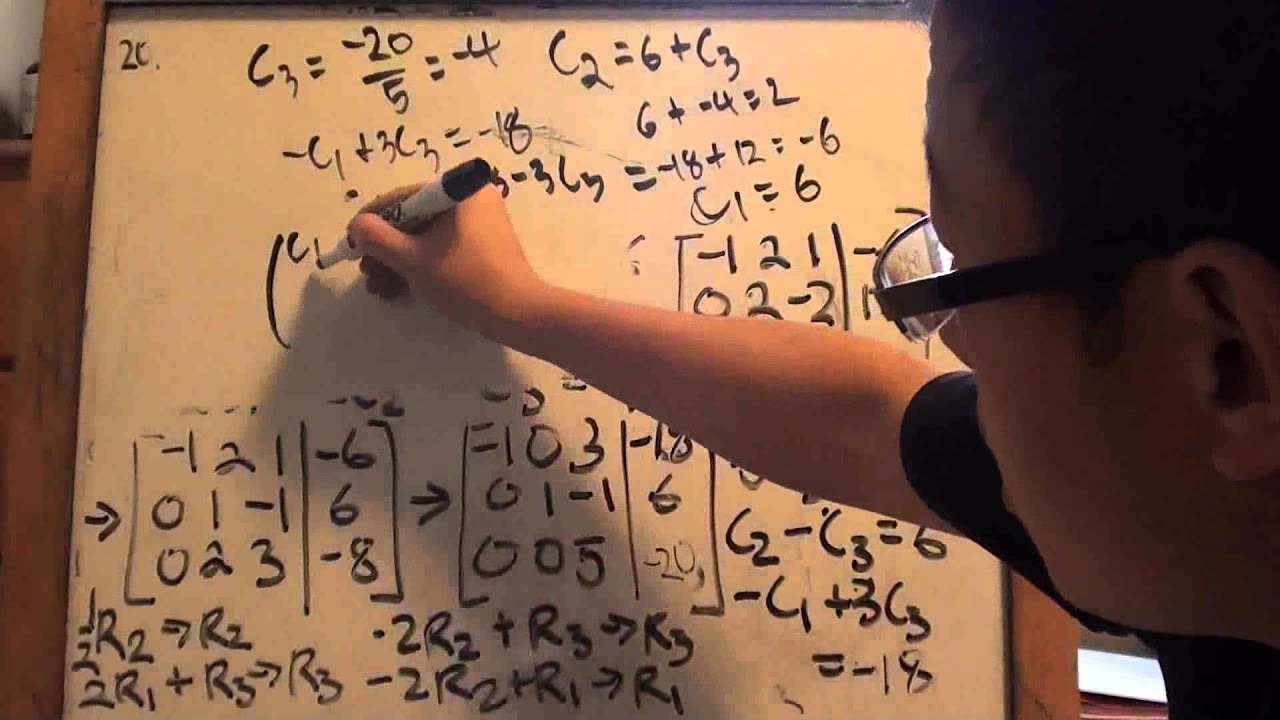 20.
C₃ = -20/5 = -4
C₂ = 6 + C₃
6 + -4 = 2
-C₁ + 3C₃ = -18
-3C₃ = -18 + 12 = -6
C₁ = 6
( C₁
[ -1 2 1 | -
0 2 -2 | 1
→ [ -1 2 1 | -6 ] → [ -1 0 3 | -18 ]
0 1 -1 | 6
0 1 -1 | 6
0 2 3 | -8
0 0 5 | -20
C₂ - C₃ = 6
-C₁ + 3C₃
= -18
½R₂ → R₂
-2R₂ + R₃ → R₃
2R₁ + R₃ → R₃
-2R₂ + R₁ → R₁